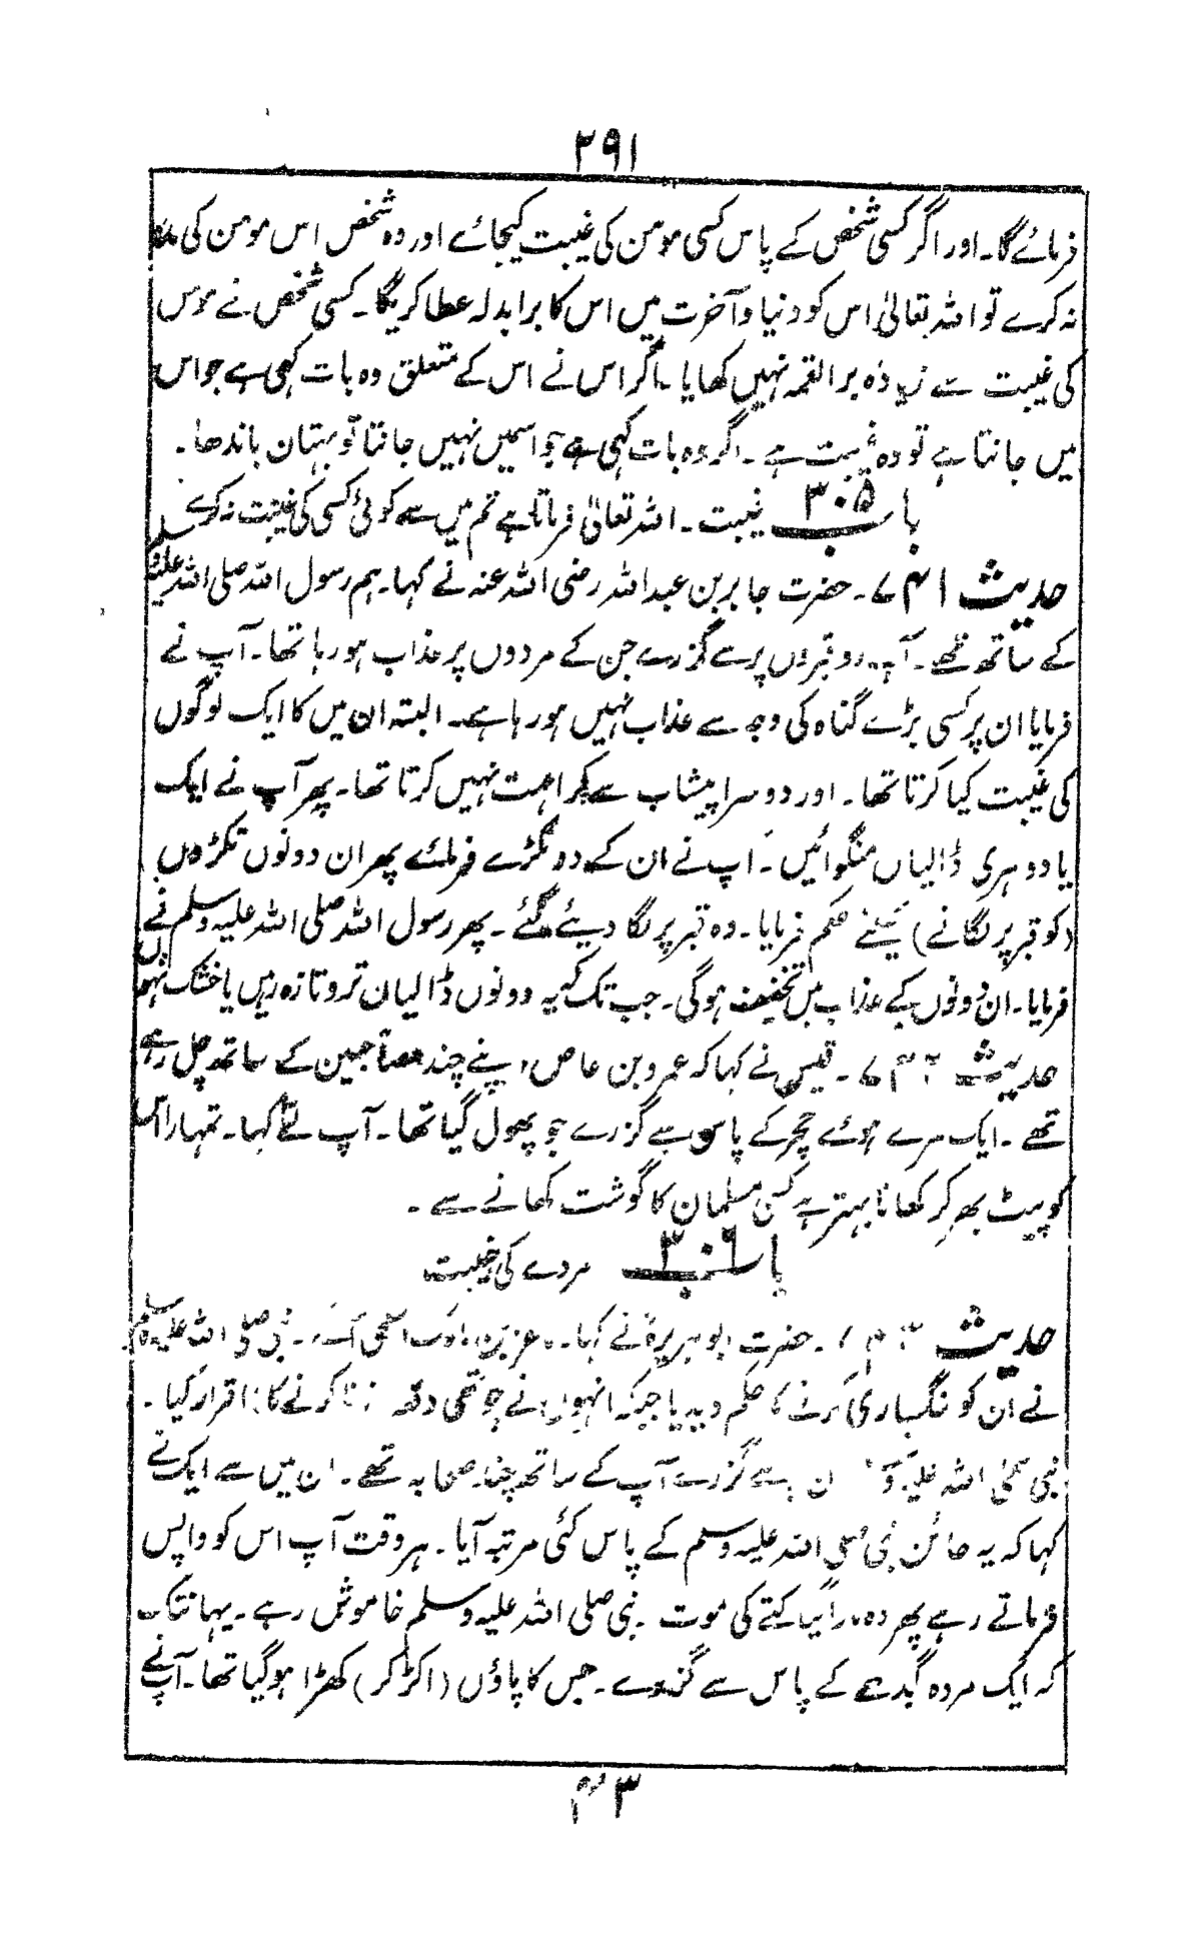 ۲۹۱
فرمائے گا۔ اور اگر کسی شخص کے پاس کسی مومن کی غیبت کیجائے اور وہ شخص اس مومن کی مدد
نہ کرے تو اللہ تعالیٰ اس کو دنیا و آخرت میں اس کا برا بدلہ عطا کریگا۔ کسی شخص نے مومن
کی غیبت سے زیادہ برا لقمہ نہیں کھایا۔ اگر اس نے اس کے متعلق وہ بات کہی ہے جو اس
میں جانتا ہے تو وہ غیبت ہے۔ اگر وہ بات کہی ہے جو اسمیں نہیں جانتا تو بہتان باندھا۔
باب ۳۰۵ غیبت۔ اللہ تعالیٰ فرماتا ہے تم میں سے کوئی کسی کی غیبت نہ کرے
حدیث ۷۴۱۔ حضرت جابر بن عبداللہ رضی اللہ عنہ نے کہا۔ ہم رسول اللہ صلی اللہ علیہ وسلم
کے ساتھ تھے۔ آپ دو قبروں پر سے گزرے جن کے مردوں پر عذاب ہو رہا تھا۔ آپ نے
فرمایا ان پر کسی بڑے گناہ کی وجہ سے عذاب نہیں ہو رہا ہے۔ البتہ ان میں کا ایک لوگوں
کی غیبت کیا کرتا تھا۔ اور دوسرا پیشاب سے کراہت نہیں کرتا تھا۔ پھر آپ نے ایک
یا دو ہری ڈالیاں منگوائیں۔ آپ نے ان کے دو ٹکڑے فرمائے پھر ان دونوں ٹکڑوں
(کو قبر پر لگانے) کیلئے حکم فرمایا۔ وہ قبر پر لگا دیئے گئے۔ پھر رسول اللہ صلی اللہ علیہ وسلم نے
فرمایا۔ ان دونوں کے عذاب میں تخفیف ہوگی۔ جب تک کہ یہ دونوں ڈالیاں تروتازہ رہیں یا خشک نہو
حدیث ۷۴۲۔ قیس نے کہا کہ عمرو بن عاص اپنے چند مصاحبین کے ساتھ چل رہے
تھے۔ ایک مرے ہوئے خچر کے پاس سے گزرے جو پھول گیا تھا۔ آپ نے کہا۔ تمہارا اس
کو پیٹ بھر کر کھانا بہتر ہے کسی مسلمان کا گوشت کھانے سے۔
باب ۳۰۶ مردے کی غیبت
حدیث ۷۴۳۔ حضرت ابوہریرہ نے کہا۔ اسلمی آئے۔ نبی صلی اللہ علیہ وسلم
نے ان کو سنگساری کرنے کا حکم دیدیا جبکہ انہوں نے چوتھی دفعہ زنا کرنے کا اقرار کیا۔
نبی صلی اللہ علیہ و ان پر سے گزرے آپ کے ساتھ چند صحابہ تھے۔ ان میں سے ایک نے
کہا کہ یہ خائن نبی صلی اللہ علیہ وسلم کے پاس کئی مرتبہ آیا۔ ہر وقت آپ اس کو واپس
فرماتے رہے پھر وہ مارا گیا کتے کی موت۔ نبی صلی اللہ علیہ وسلم خاموش رہے۔ یہانتک
کہ ایک مردہ گدھے کے پاس سے گزرے۔ جس کا پاؤں (اکڑ کر) کھڑا ہو گیا تھا۔ آپ نے